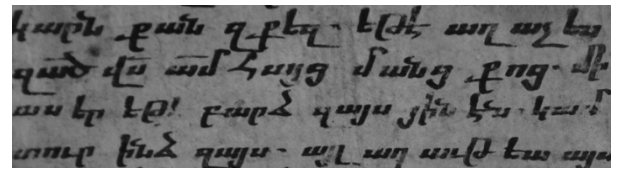 կարն քան զքեզ. եթէ աղաչես
զած վս ամ հայցմանց քոց. մի
ասեր եթէ՛ բարձ զայս յինէն. կամ
տուր ինձ զայս. այլ աղաւթեա այս